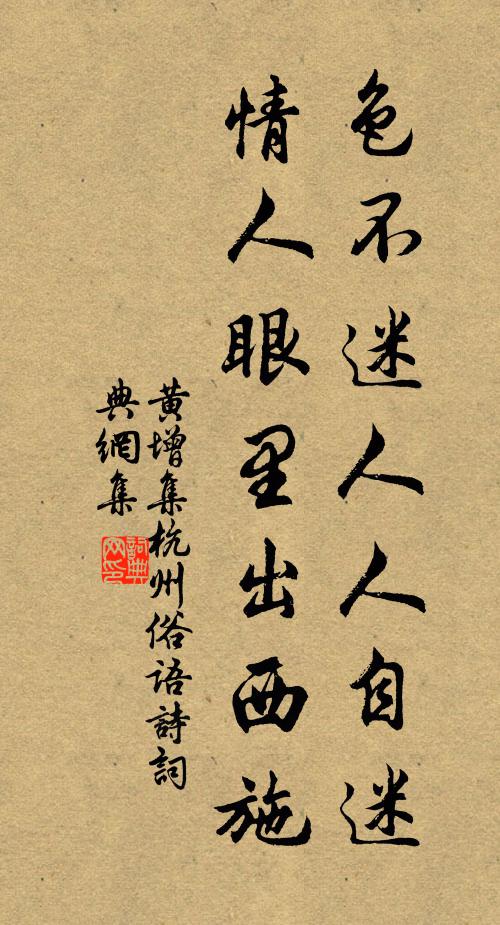 色不迷人人自迷
情人眼里出西施
黄增集杭州俗语詩詞
典網集
詞典
网印